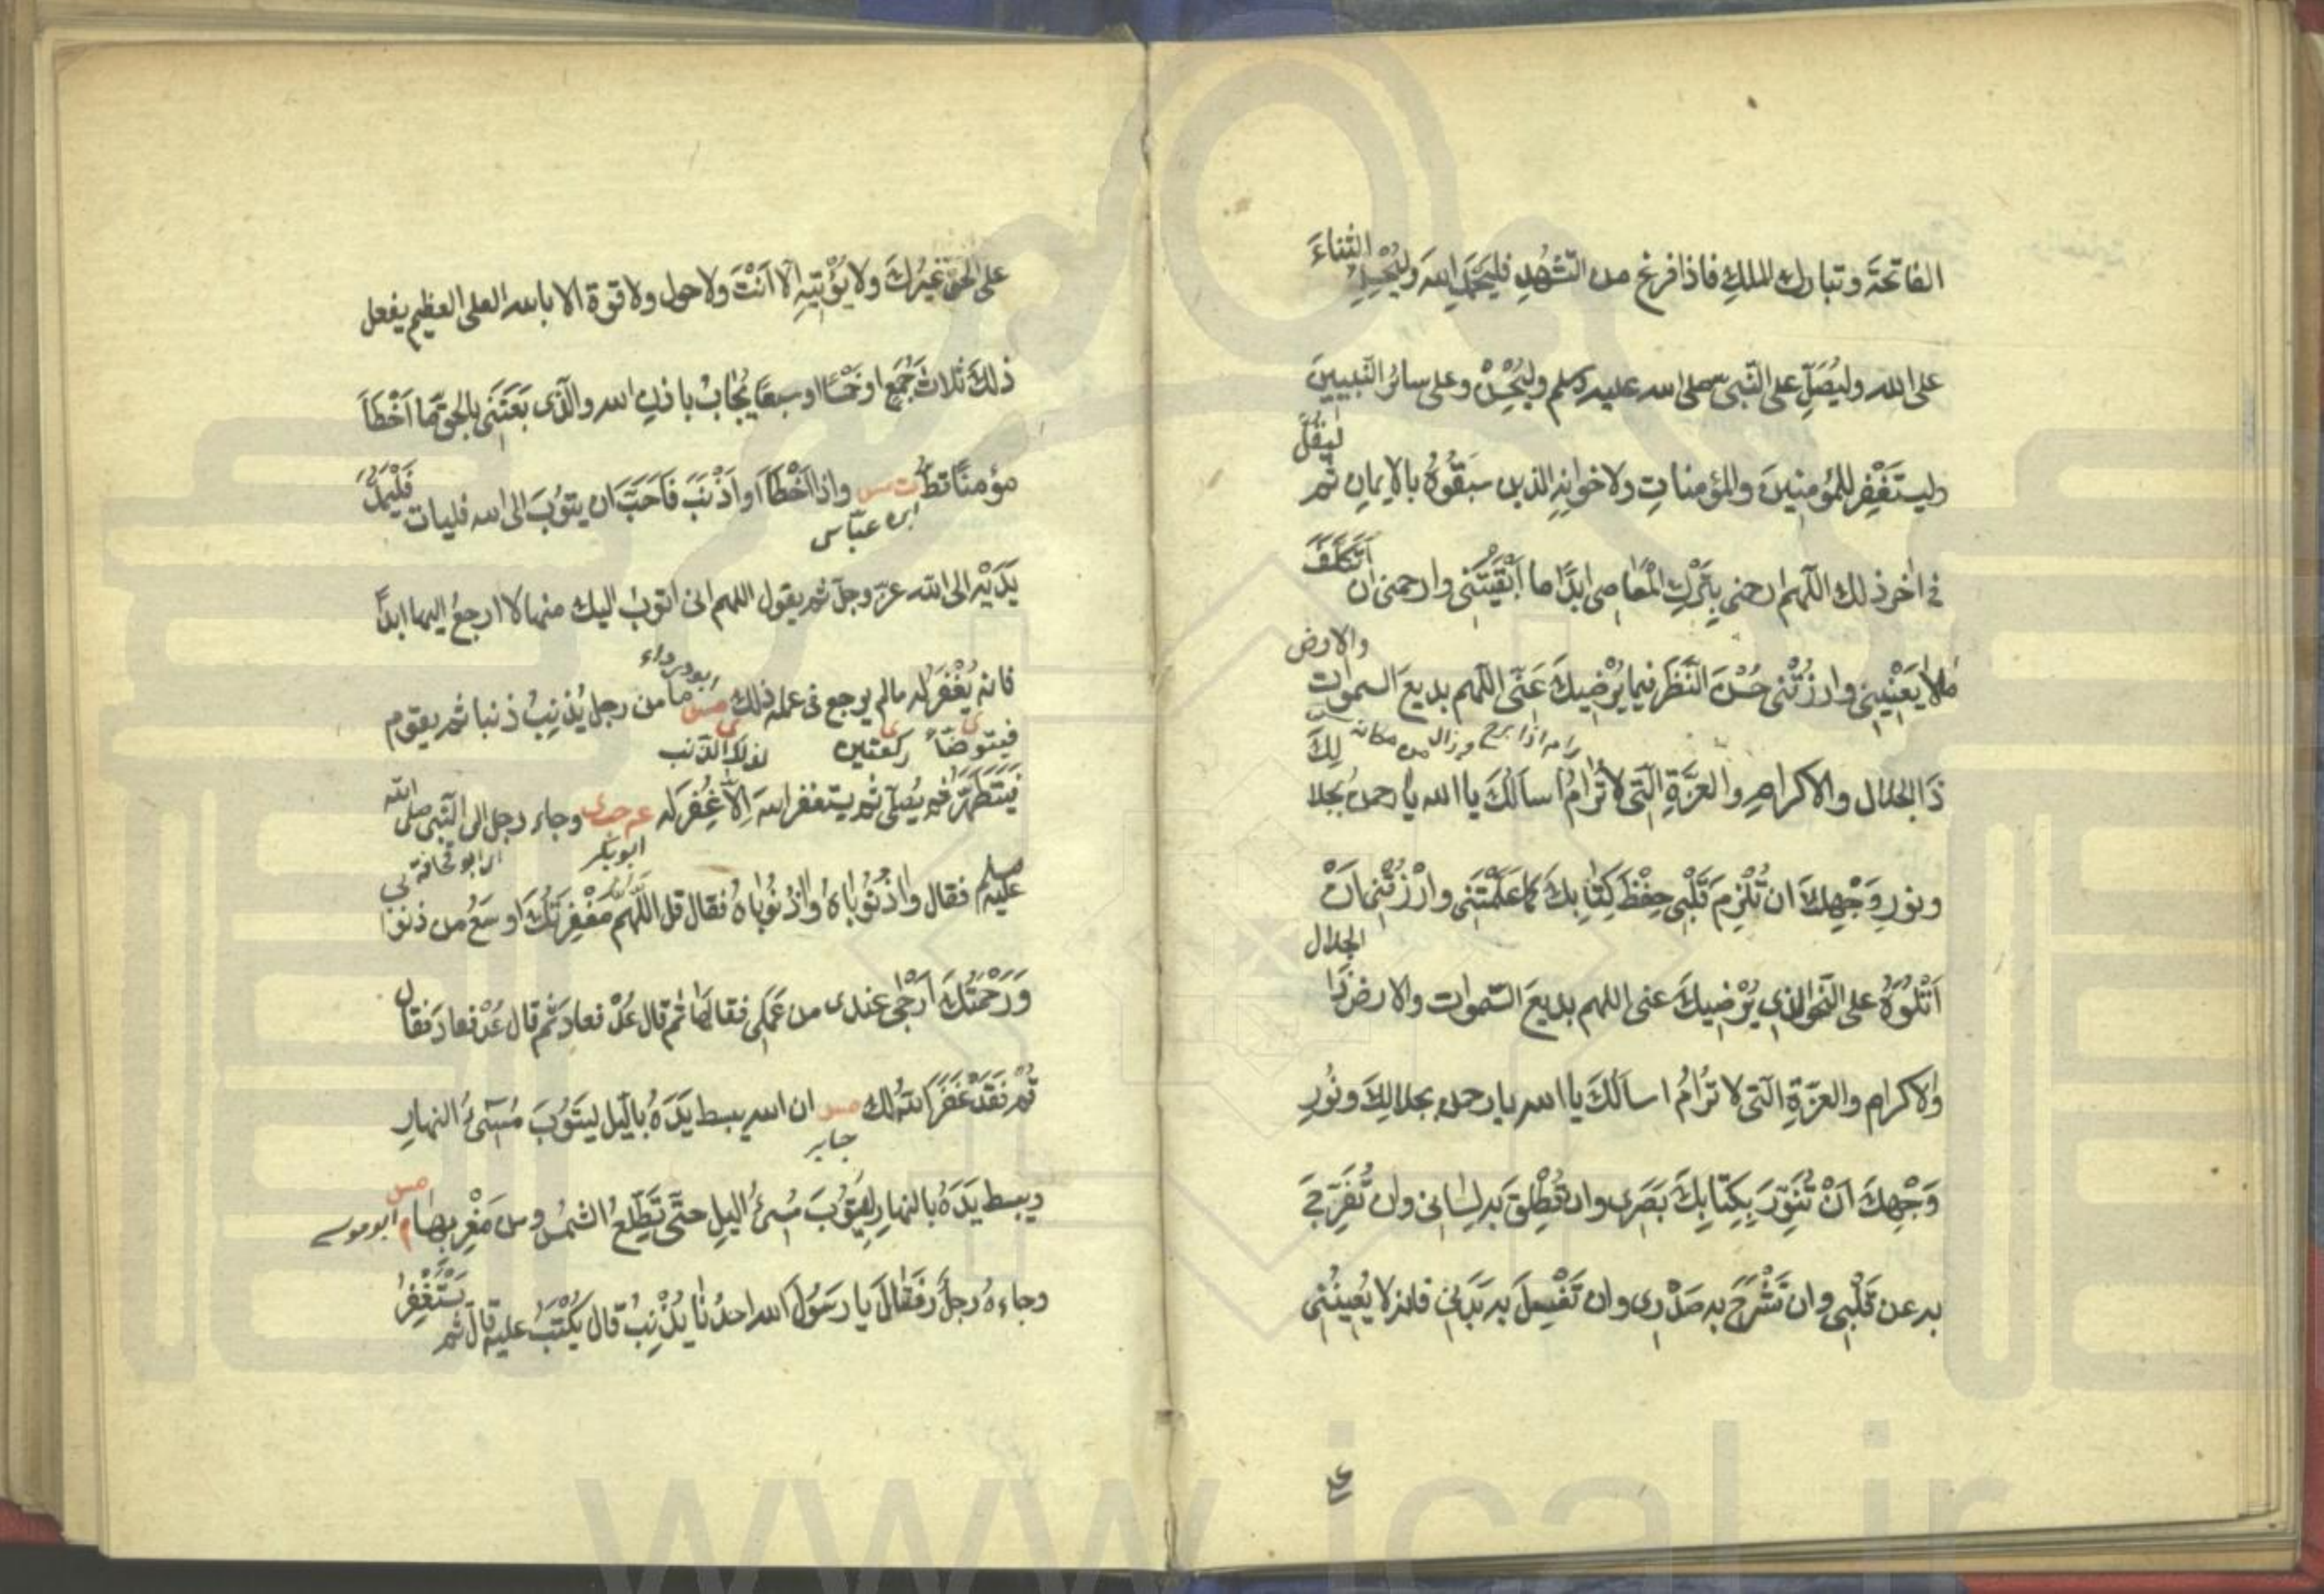 الفاتحة وتبارك الملك فاذا فرغ من التشهد فليحمد الله وليحسن الثناء
على الله وليصل على النبي صلى الله عليه وسلم وليحسن وعلى سائر النبيين
وليستغفر للمؤمنين والمؤمنات ولاخوانه الذين سبقوه بالايمان ثم ليقل
في اخر ذلك اللهم ارحمني بترك المعاصي ابدا ما ابقيتني وارحمني ان اتكلف
ما لا يعنيني وارزقني حسن النظر فيما يرضيك عني اللهم بديع السموات والارض
رام اذا برح وزال من مكانه
ذا الجلال والاكرام والعزة التي لا ترام اسالك يا الله يا رحمن بجلالك
ونور وجهك ان تلزم قلبي حفظ كتابك كما علمتني وارزقني ان
اتلوه على النحو الذي يرضيك عني اللهم بديع السموات والارض ذا الجلال
والاكرام والعزة التي لا ترام اسالك يا الله يا رحمن بجلالك ونور
وجهك ان تنور بكتابك بصري وان تطلق به لساني وان تفرج
به عن قلبي وان تشرح به صدري وان تغسل به بدني فانه لا يعينني
على الحق غيرك ولا يؤتيه الا انت ولا حول ولا قوة الا بالله العلي العظيم يفعل
ذلك ثلاث جمع او خمسا او سبعا يجاب باذن الله والذي بعثني بالحق ما اخطا
مؤمنا قط ت مس واذا اخطا او اذنب فاحب ان يتوب الى الله فليات فليمد
ابن عباس
يديه الى الله عز وجل ثم يقول اللهم اني اتوب اليك منها لا ارجع اليها ابدا
ابودرداء
فانه يغفر له ما لم يرجع في عمله ذلك مس ما من رجل يذنب ذنبا ثم يقوم
فيتوضأ ركعتين لذلك الذنب
فيتطهر ثم يصلي ثم يستغفر الله الا غفر له وجاء رجل الى النبي صلى الله
ابوبكر
عليه وسلم فقال واذنوباه واذنوباه فقال قل اللهم مغفرتك اوسع من ذنوبي
ورحمتك ارجى عندي من عملي فقالها ثم قال عد فعاد ثم قال عد فعاد فقال
قم فقد غفر الله لك مس ان الله يبسط يده بالليل ليتوب مسيء النهار
جابر
ويبسط يده بالنهار ليتوب مسيء الليل حتى تطلع الشمس من مغربها م مس ابو موسى
وجاءه رجل فقال يا رسول الله احدنا يذنب قال يكتب عليه قال ثم يستغفر
www.ical.ir